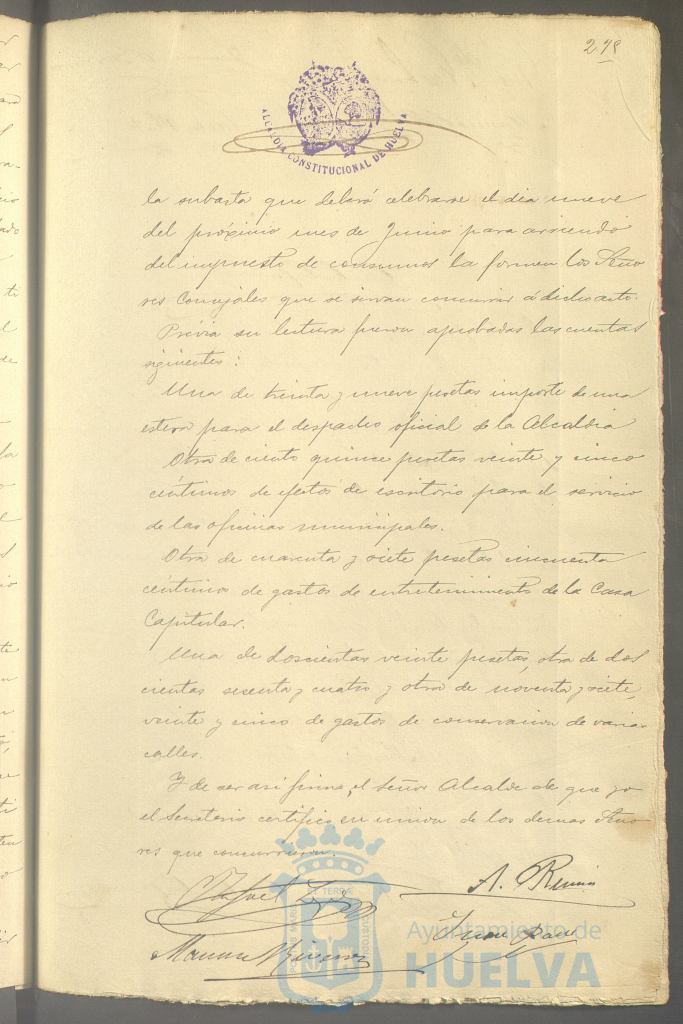 278
ALCALDIA CONSTITUCIONAL DE HUELVA
la subasta que deberá celebrarse el dia nueve
del próximo mes de Junio para arriendo
del impuesto de consumos la formen los Seño
res Concejales que se sirvan concurrir á dicho acto.
Prévia su lectura fueron aprobadas las cuentas
siguientes:
Una de treinta y nueve pesetas importe de una
estera para el despacho oficial de la Alcaldia
Otra de ciento quince pesetas veinte y cinco
céntimos de efectos de escritorio para el servicio
de las oficinas municipales.
Otra de cuarenta y siete pesetas cincuenta
céntimos de gastos de entretenimiento de la Casa
Capitular.
Una de doscientas veinte pesetas, otra de dos
cientas sesenta y cuatro y otra de noventa y siete,
veinte y cinco de gastos de conservacion de varias
calles.
Y de ser asi firma, el Señor Alcalde de que yo
el Secretario certifico en union de los demas Seño
res que concurrieron.
A.
Juan
Manuel
Ayuntamiento de
HUELVA